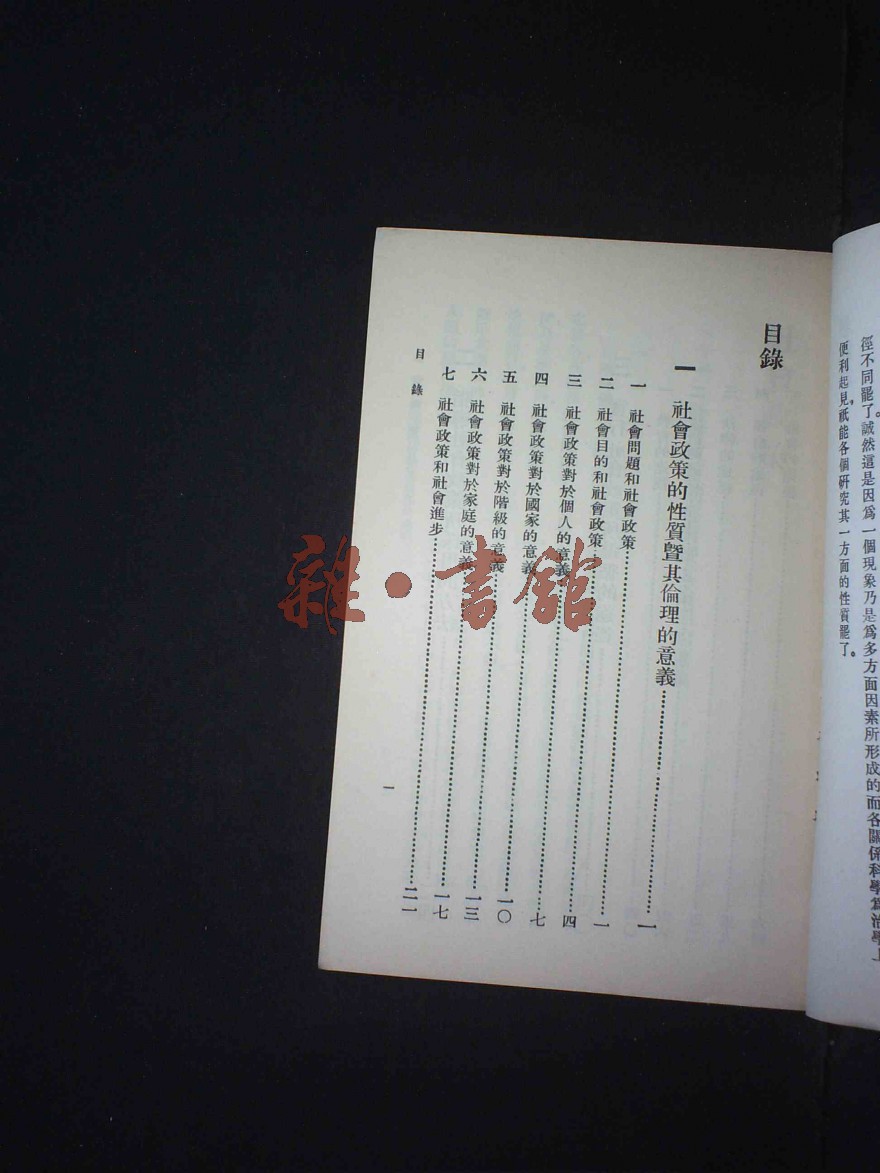 徑不同罷了。誠然這是因爲一個現象乃是爲多方面因素所形成的而各關係科學爲治學上
便利起見，祇能各個研究其一方面的性質罷了。
目錄
一 社會政策的性質暨其倫理的意義……一
一 社會問題和社會政策……一
二 社會目的和社會政策……四
三 社會政策對於個人的意義……七
四 社會政策對於國家的意義……一〇
五 社會政策對於階級的意義……一三
六 社會政策對於家庭的意義……一七
七 社會政策和社會進步……二一
目錄
一
雜·書館